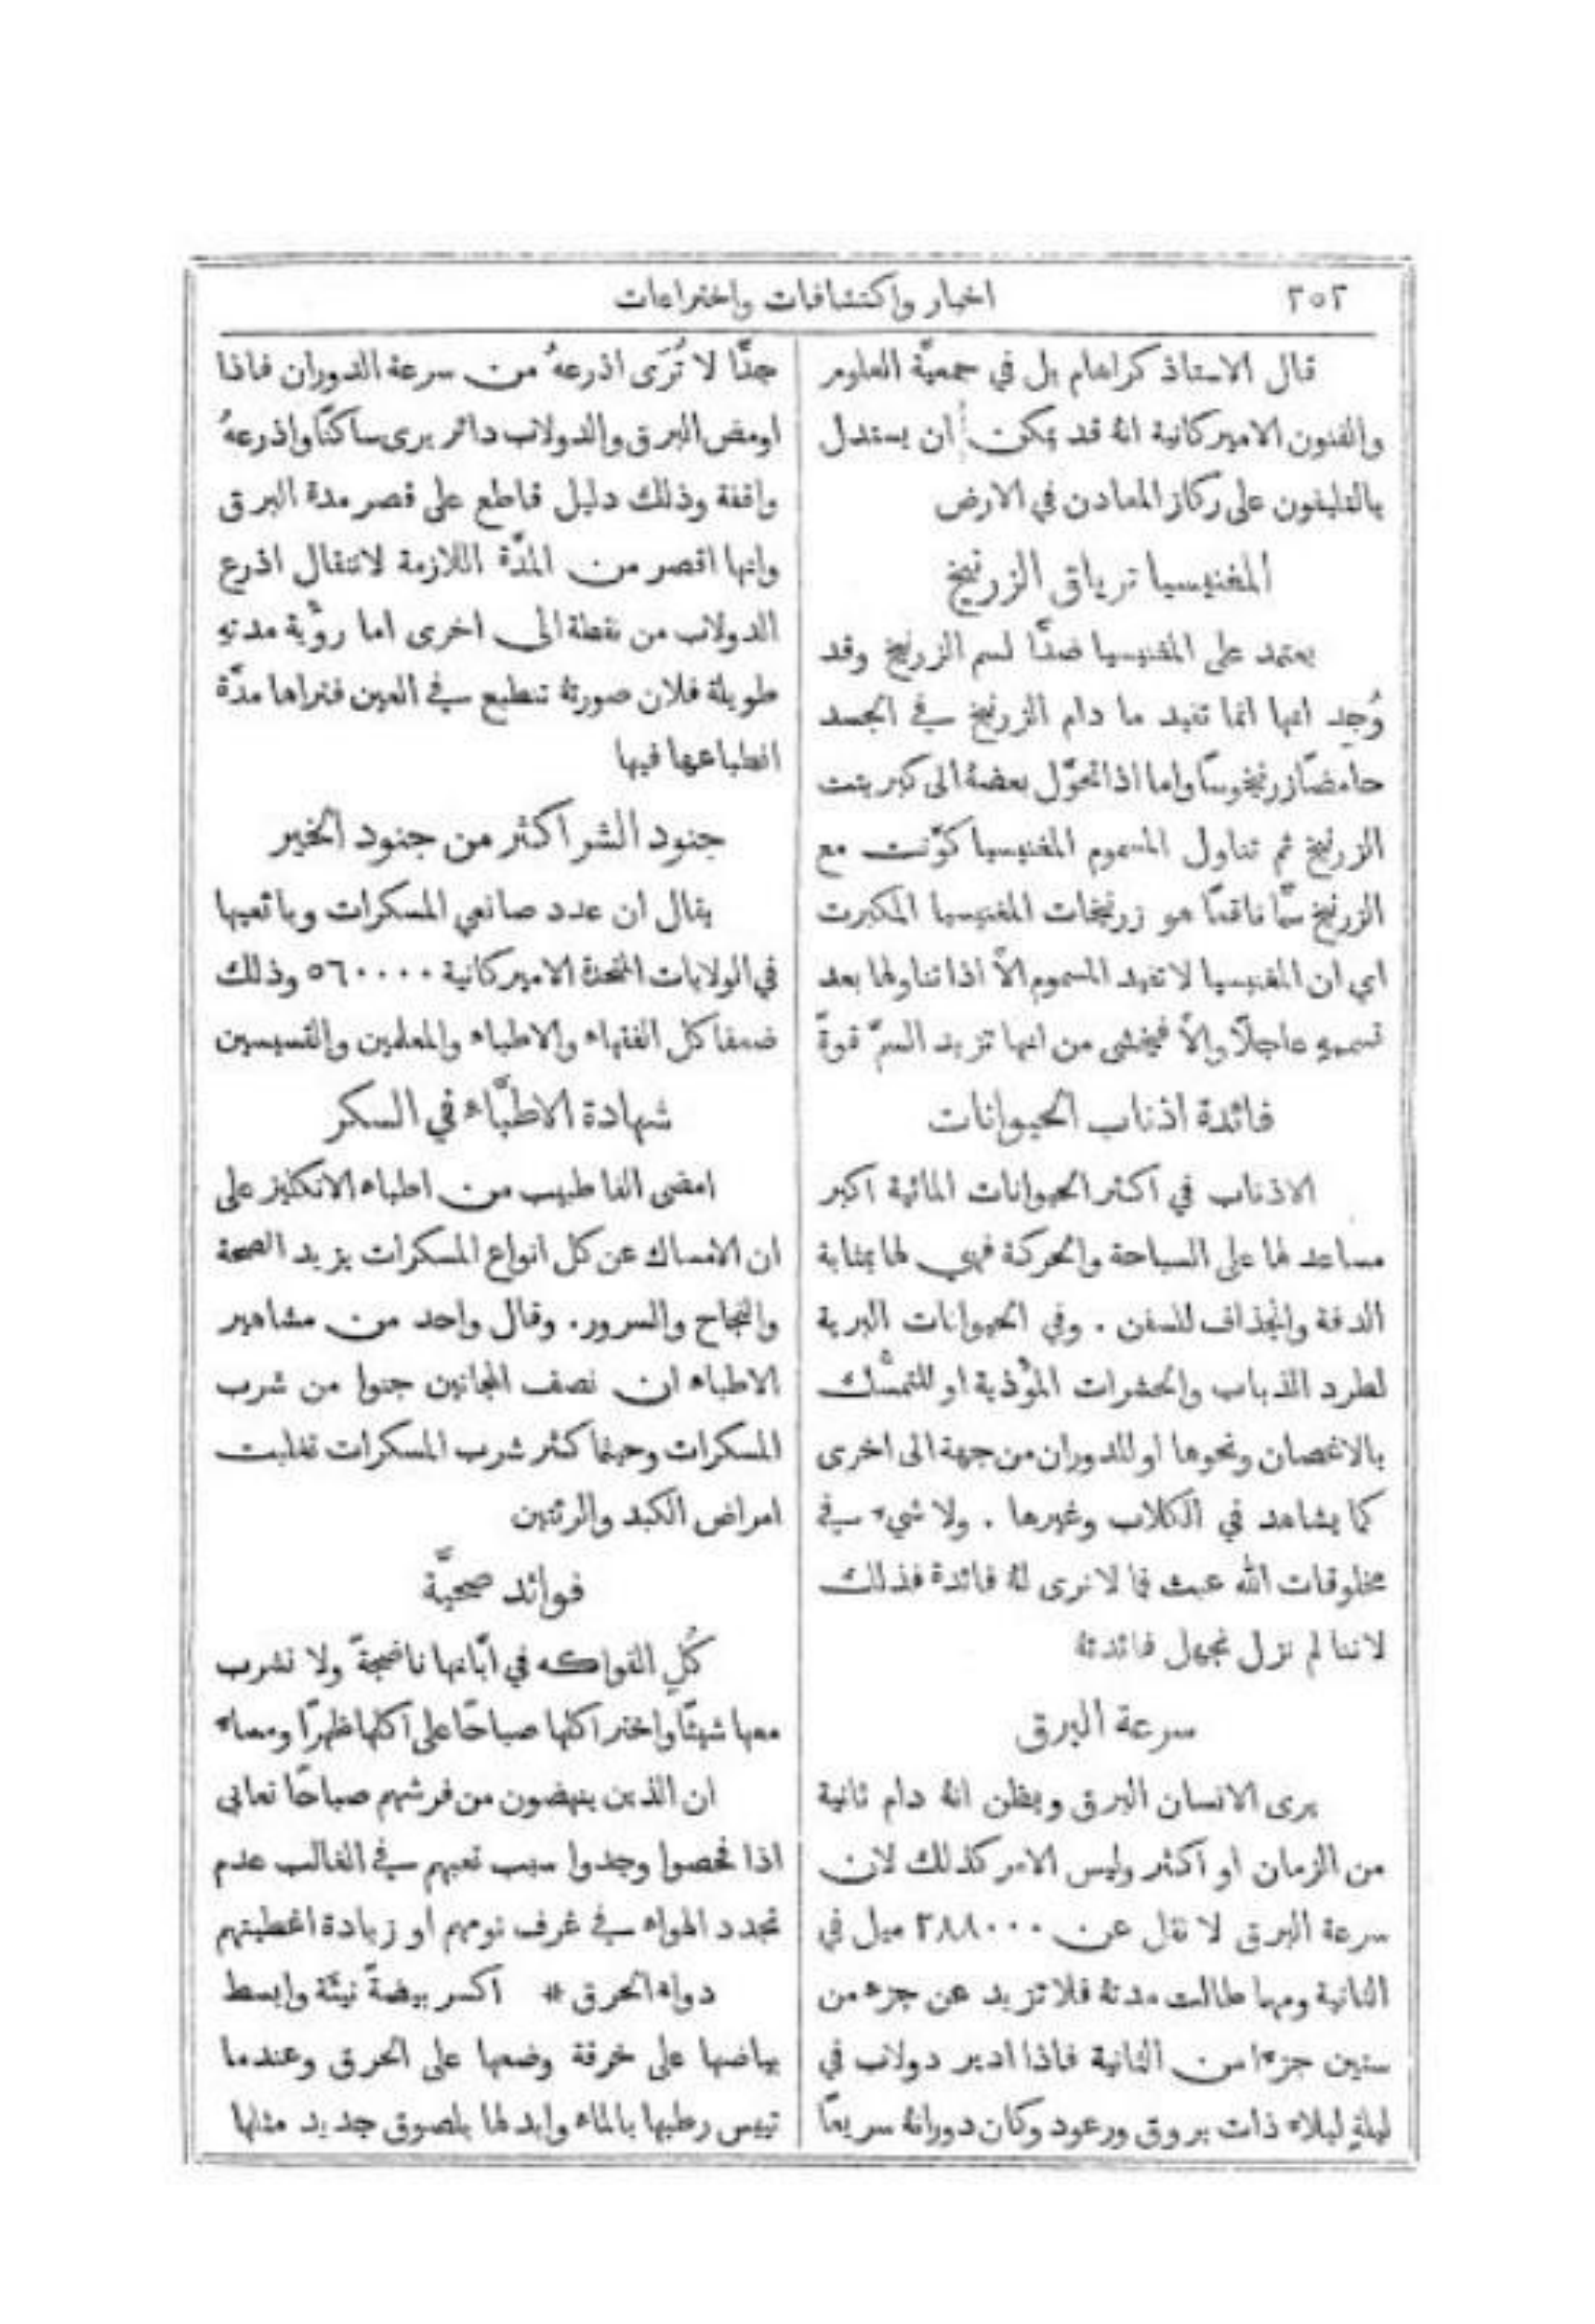 ٢٥٢
اخبار واكتشافات واختراعات
قال الاستاذ كراهام بل في جمعيَّة العلوم
والفنون الاميركانية انهُ قد يمكن ان يستدل
بالتليفون على ركاز المعادن في الارض
المغنيسيا ترياق الزرنيخ
يعتمد على المغنيسيا ضدًّا لسم الزرنيخ وقد
وُجد انها انما تفيد ما دام الزرنيخ في الجسد
حامضًا زرنيخوسًا واما اذا تحوَّل بعضهُ الى كبريتت
الزرنيخ ثم تناول المسموم المغنيسيا كوَّنت مع
الزرنيخ سمًّا ناقعًا هو زرنيخات المغنيسيا المكبرت
اي ان المغنيسيا لا تفيد المسموم الَّا اذا تناولها بعد
تسممهِ عاجلًا والَّا فيخشى من انها تزيد السمَّ قوةً
فائدة اذناب الحيوانات
الاذناب في اكثر الحيوانات المائية اكبر
مساعد لها على السباحة والحركة فهي لها بمثابة
الدفة والمجذاف للسفن . وفي الحيوانات البرية
لطرد الذباب والحشرات المؤْذية او للتمسُّك
بالاغصان ونحوها او للدوران من جهة الى اخرى
كما يشاهد في الكلاب وغيرها . ولا شيء في
مخلوقات الله عبث فما لا نرى لهُ فائدة فذلك
لاننا لم نزل نجهل فائدتهُ
سرعة البرق
يرى الانسان البرق ويظن انهُ دام ثانية
من الزمان او اكثر وليس الامر كذلك لان
سرعة البرق لا تقل عن ٢٨٨٠٠٠ ميل في
الثانية ومهما طالت مدتهُ فلا تزيد عن جزء من
ستين جزءا من الثانية فاذا ادير دولاب في
ليلةٍ ليلاء ذات بروق ورعود وكان دورانهُ سريعًا
جدًّا لا تُرَى اذرعهُ من سرعة الدوران فاذا
اومض البرق والدولاب دائر يرى ساكنًا واذرعهُ
واقفة وذلك دليل قاطع على قصر مدة البرق
وانها اقصر من المدَّة اللازمة لانتقال اذرع
الدولاب من نقطة الى اخرى اما رؤْية مدتهِ
طويلة فلان صورتهُ تنطبع في العين فنراها مدَّة
انطباعها فيها
جنود الشر اكثر من جنود الخير
يقال ان عدد صانعي المسكرات وبائعيها
في الولايات المتحدة الاميركانية ٥٦٠٠٠٠ وذلك
ضعفا كل الفقهاء والاطباء والمعلمين والقسيسين
شهادة الاطبَّاء في السكر
امضى الفا طبيب من اطباء الانكليز على
ان الامساك عن كل انواع المسكرات يزيد الصحة
والنجاح والسرور. وقال واحد من مشاهير
الاطباء ان نصف المجانين جنوا من شرب
المسكرات وحيثما كثر شرب المسكرات تغلبت
امراض الكبد والرئتين
فوائد صحيَّة
كُلِ الفواكه في ابَّانها ناضجةً ولا تشرب
معها شيئًا واختر اكلها صباحًا على اكلها ظهرًا ومساء
ان الذين ينهضون من فرشهم صباحًا تعابى
اذا فحصوا وجدوا سبب تعبهم في الغالب عدم
تجدد الهواء في غرف نومهم او زيادة اغطيتهم
دواء الحرق * اكسر بيضةً نيئة وابسط
بياضها على خرقة وضعها على الحرق وعندما
تيبس رطبها بالماء وابدلها بلصوق جديد مثلها